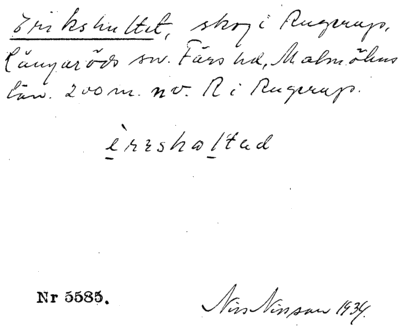 Erikshultet, skog i Rugerup,
Långaröds sn. Färs hd, Malmöhus
län. 200 m. nv. R i Rugerup.
èrrshaltad
Nr 5585.
Nils Nilsson 1934.